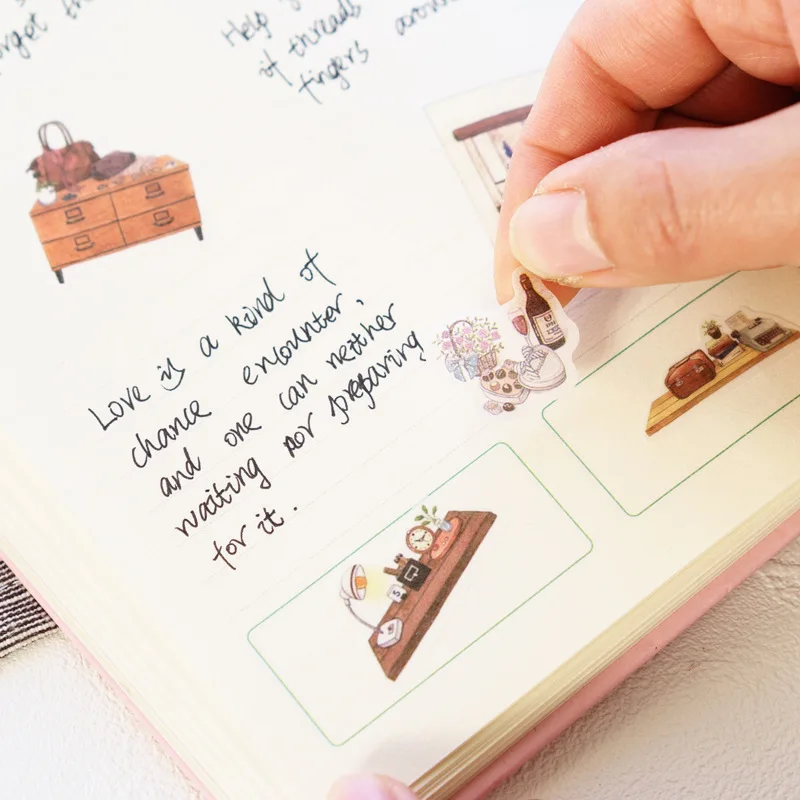 Help
of threads
fingers
Love is a kind of
chance encounter,
and one can neither
waiting nor preparing
for it.